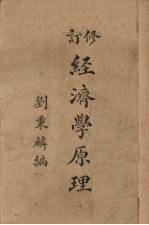 修訂
經濟學原理
劉秉麟編